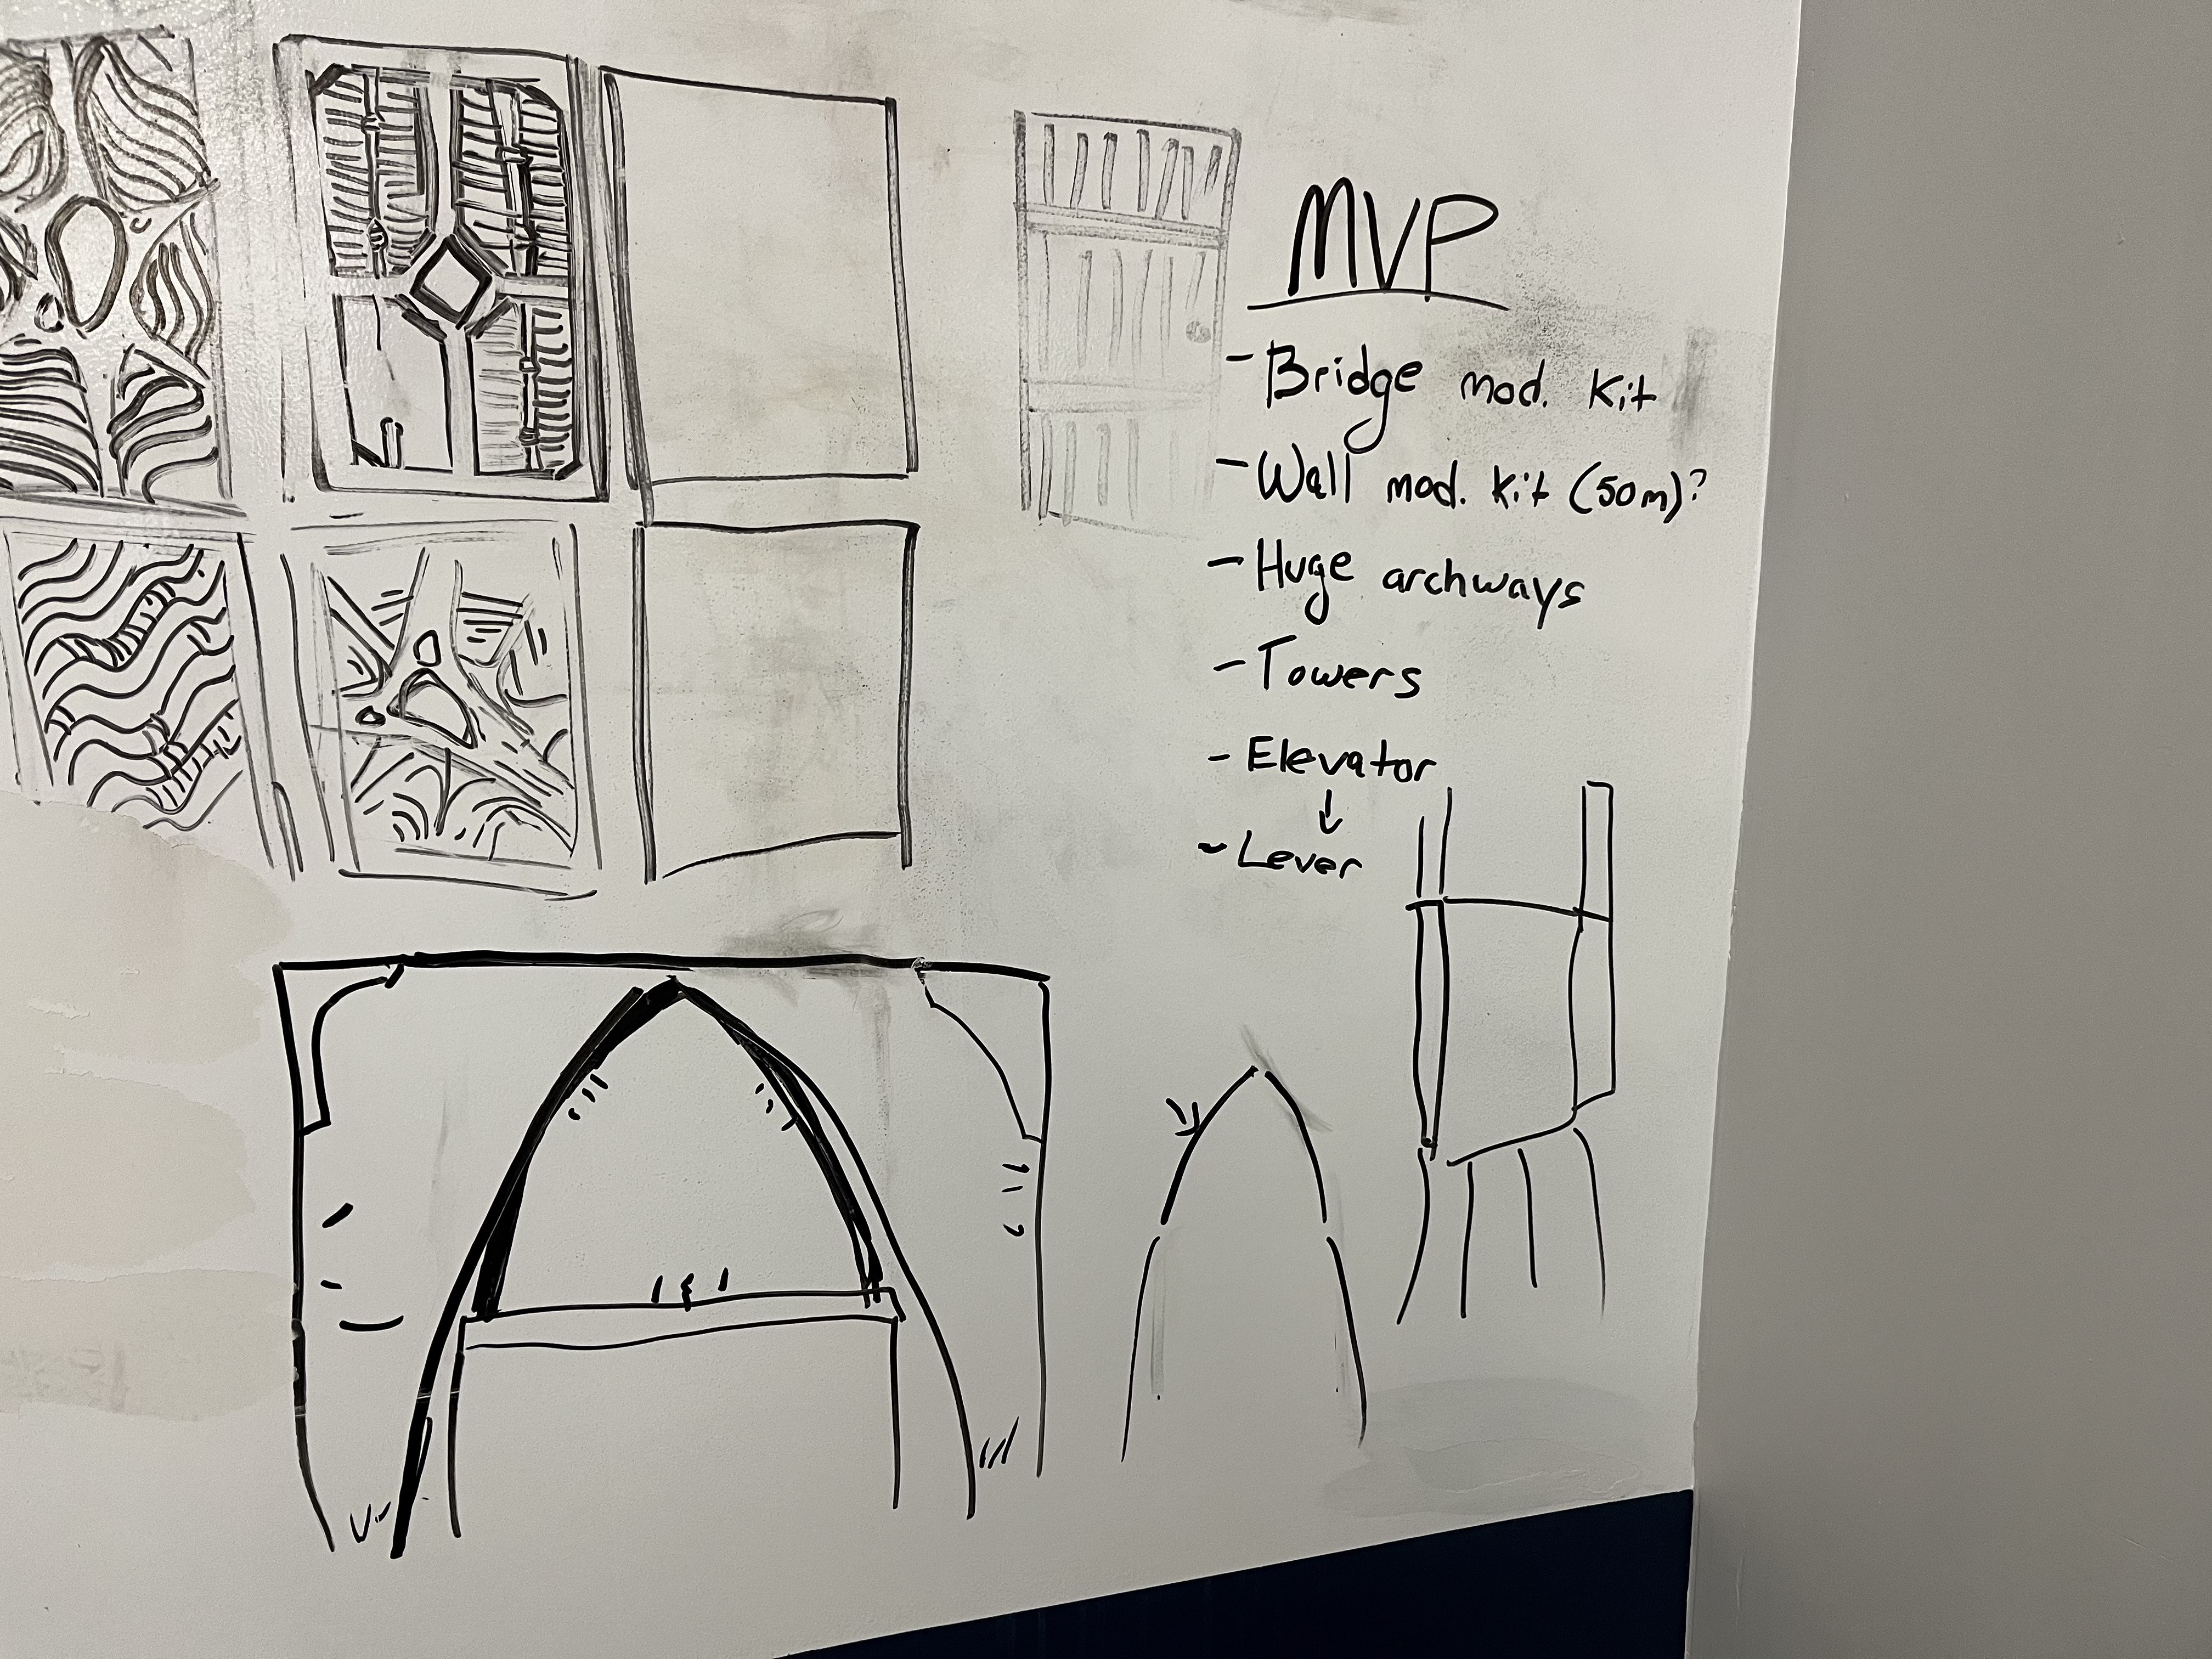 MVP
- Bridge mod. Kit
- Wall mod. kit (50m)?
- Huge archways
- Towers
- Elevator
↓
- Lever